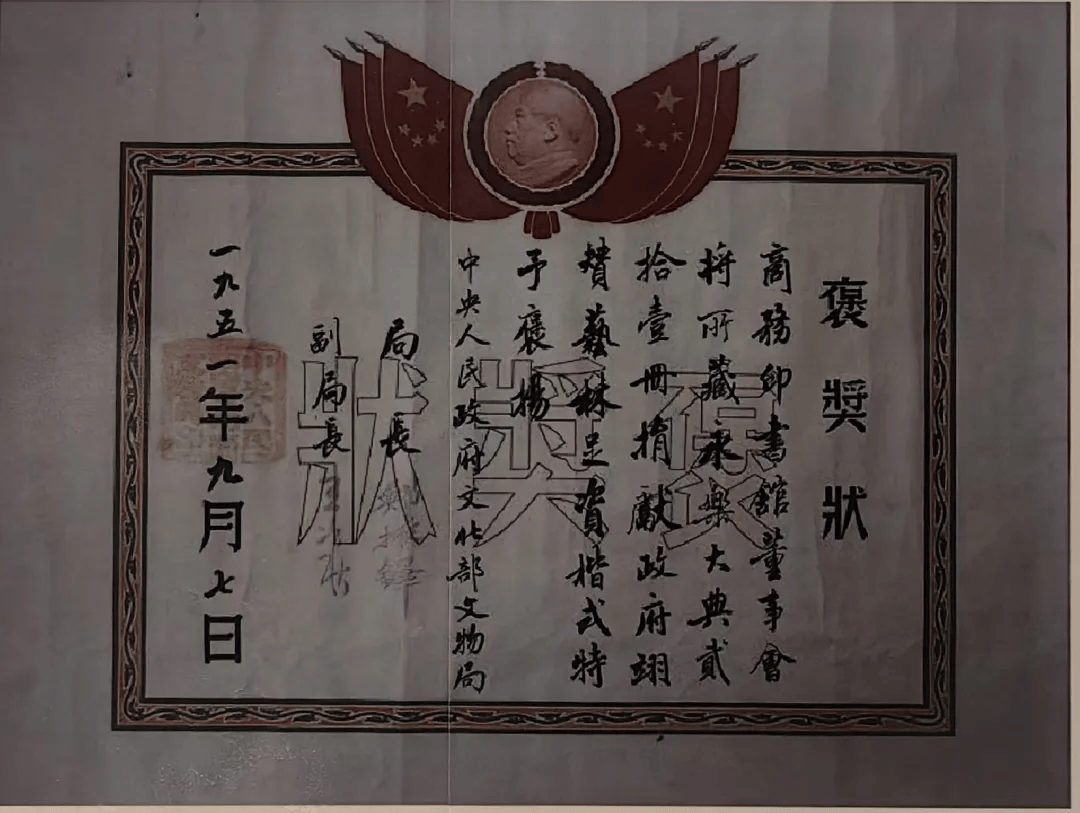 褒獎狀
商務印書館董事會
將所藏永樂大典貳
拾壹冊捐獻政府翊
贊藝林足資楷式特
予褒揚
中央人民政府文化部文物局
局長 鄭振鐸
副局長
一九五一年九月七日
褒獎狀